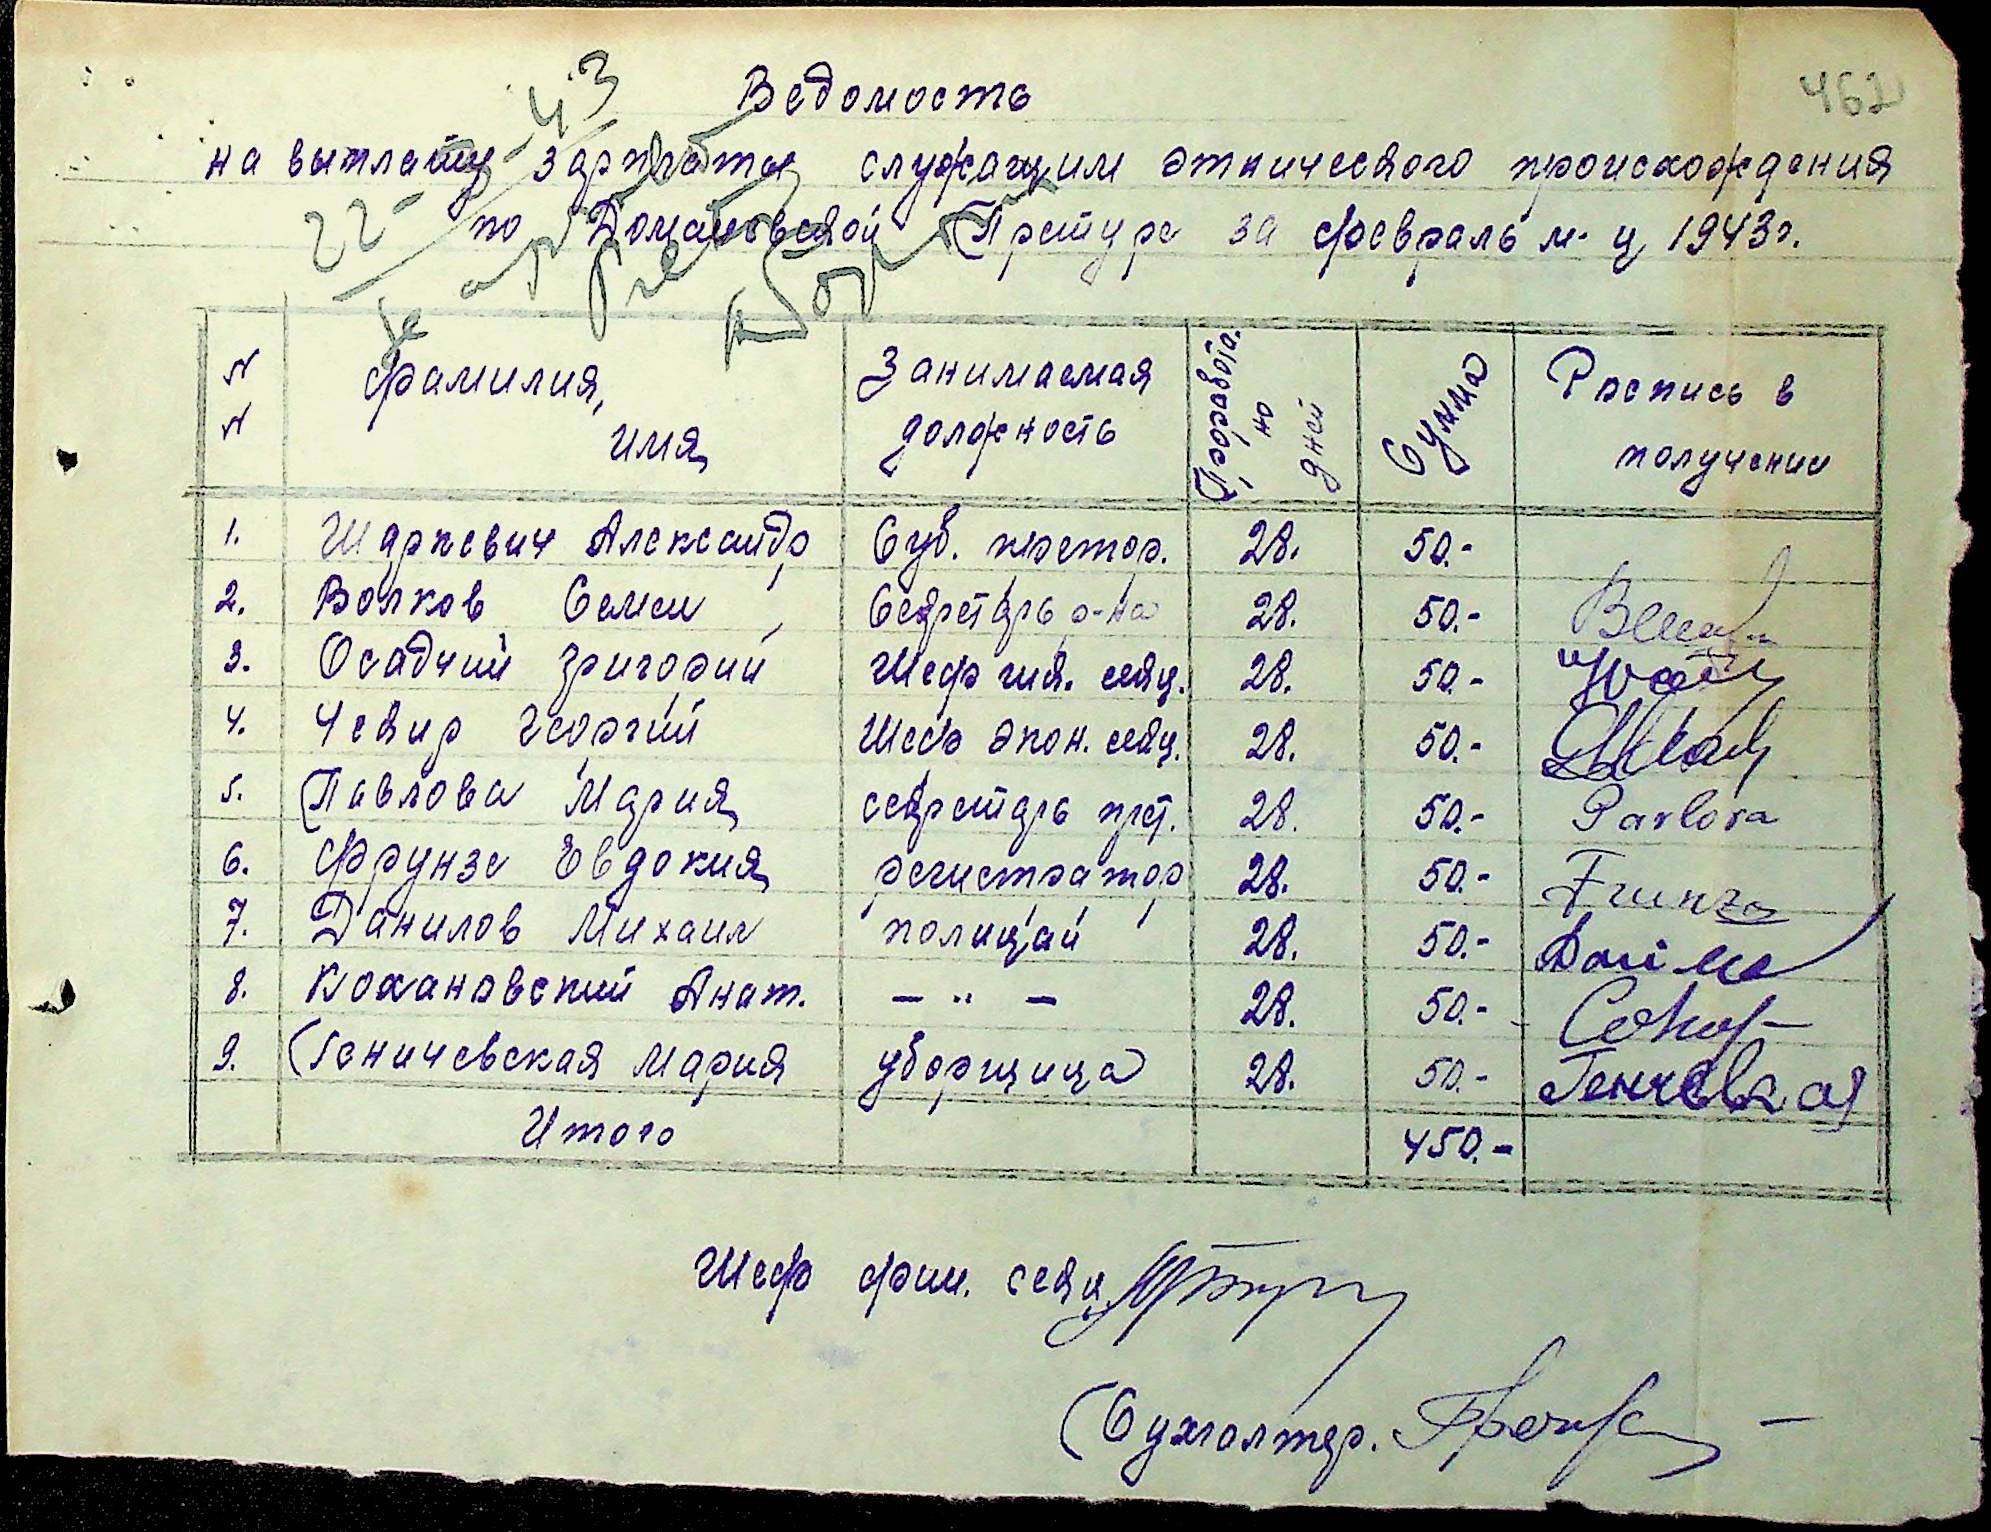 462
Ведомость
на выплату зарплаты служащим этнического происхождения
по Домановской Претуре за февраль м-ц 1943г.
N N Фамилия, имя Занимаемая должность Проработано дней Сумма Роспись в получении
1. Александр Суб. претор. 28. 50.-
2. Волков Семен Секретарь 28. 50.-
3. Осадчий Григорий Шеф секц. 28. 50.-
4. Чекир Георгий Шеф экон. секц. 28. 50.-
5. Павлова Мария секретарь прет. 28. 50.- Pavlova
6. Фрунзе Евдокия регистратор 28. 50.- Frunza
7. Данилов Михаил полицай 28. 50.-
8. Кохановский Анат. — " — 28. 50.-
9. Геничевская Мария уборщица 28. 50.-
Итого 450.-
Шеф фин. секц.
Бухгалтер.